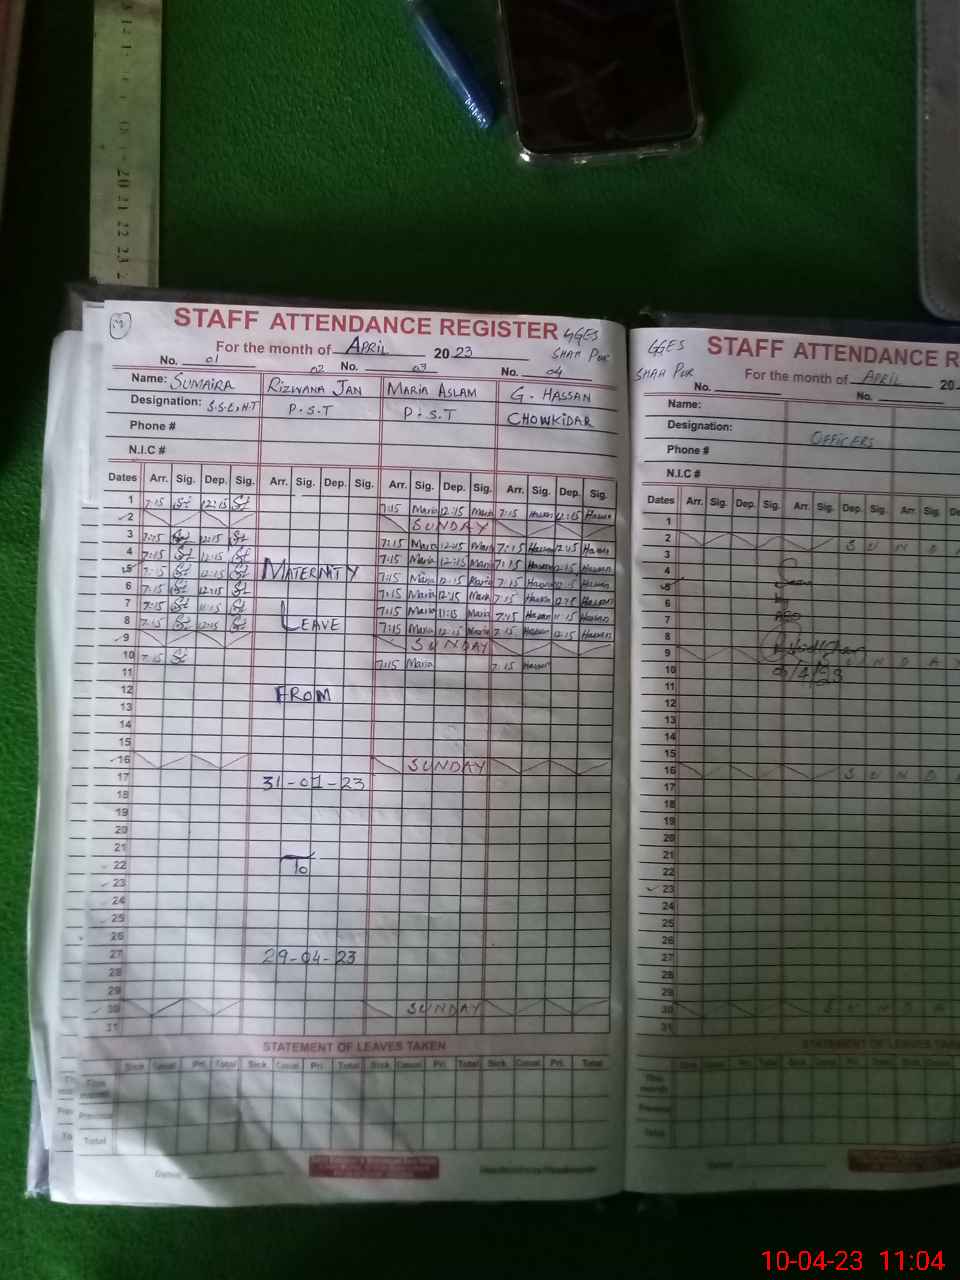 STAFF ATTENDANCE REGISTER GGES
For the month of APRIL 2023 SHAH PUR
No. 01 02 No. 03 No. 04
Name: SUMAIRA RIZWANA JAN MARIA ASLAM G. HASSAN
Designation: P.S.T P.S.T CHOWKIDAR
Phone #
N.I.C #
Dates Arr. Sig. Dep. Sig. Arr. Sig. Dep. Sig. Arr. Sig. Dep. Sig. Arr. Sig. Dep. Sig.
1 7:15 12:15 7:15 Maria 12:15 Maria 7:15 Hassan 12:15 Hassan
2 SUNDAY
3 7:15 12:15 7:15 Maria 12:15 Maria 7:15 Hassan 12:15 Hassan
4 7:15 12:15 7:15 Maria 12:15 Maria 7:15 Hassan 12:15 Hassan
5 7:15 12:15 MATERNITY 7:15 Maria 12:15 Maria 7:15 Hassan 12:15 Hassan
6 7:15 12:15 7:15 Maria 12:15 Maria 7:15 Hassan 12:15 Hassan
7 7:15 11:15 7:15 Maria 11:15 Maria 7:15 Hassan 11:15 Hassan
8 7:15 12:15 LEAVE 7:15 Maria 12:15 Maria 7:15 Hassan 12:15 Hassan
9 SUNDAY
10 7:15 7:15 Maria 7:15 Hassan
11
12 FROM
13
14
15
16 SUNDAY
17 31-01-23
18
19
20
21
22 To
23
24
25
26
27 29-04-23
28
29
30 SUNDAY
31
STATEMENT OF LEAVES TAKEN
Sick Casual Pri. Total Sick Casual Pri. Total Sick Casual Pri. Total Sick Casual Pri. Total
This month
Previous
Total
GGES STAFF ATTENDANCE R
SHAH PUR For the month of APRIL 20
No. No.
Name:
Designation: OFFICERS
Phone #
N.I.C #
Dates Arr. Sig. Dep. Sig. Arr. Sig. Dep. Sig. Arr. Sig.
1
2 SUNDA
3
4
5
6
7
8
9 UNDAY
10
11
12
13
14
15
16 SUNDA
17
18
19
20
21
22
23
24
25
26
27
28
29
30 SUNDA
31
STATEMENT OF LEAVES TAKEN
This month
Previous
Total
10-04-23 11:04